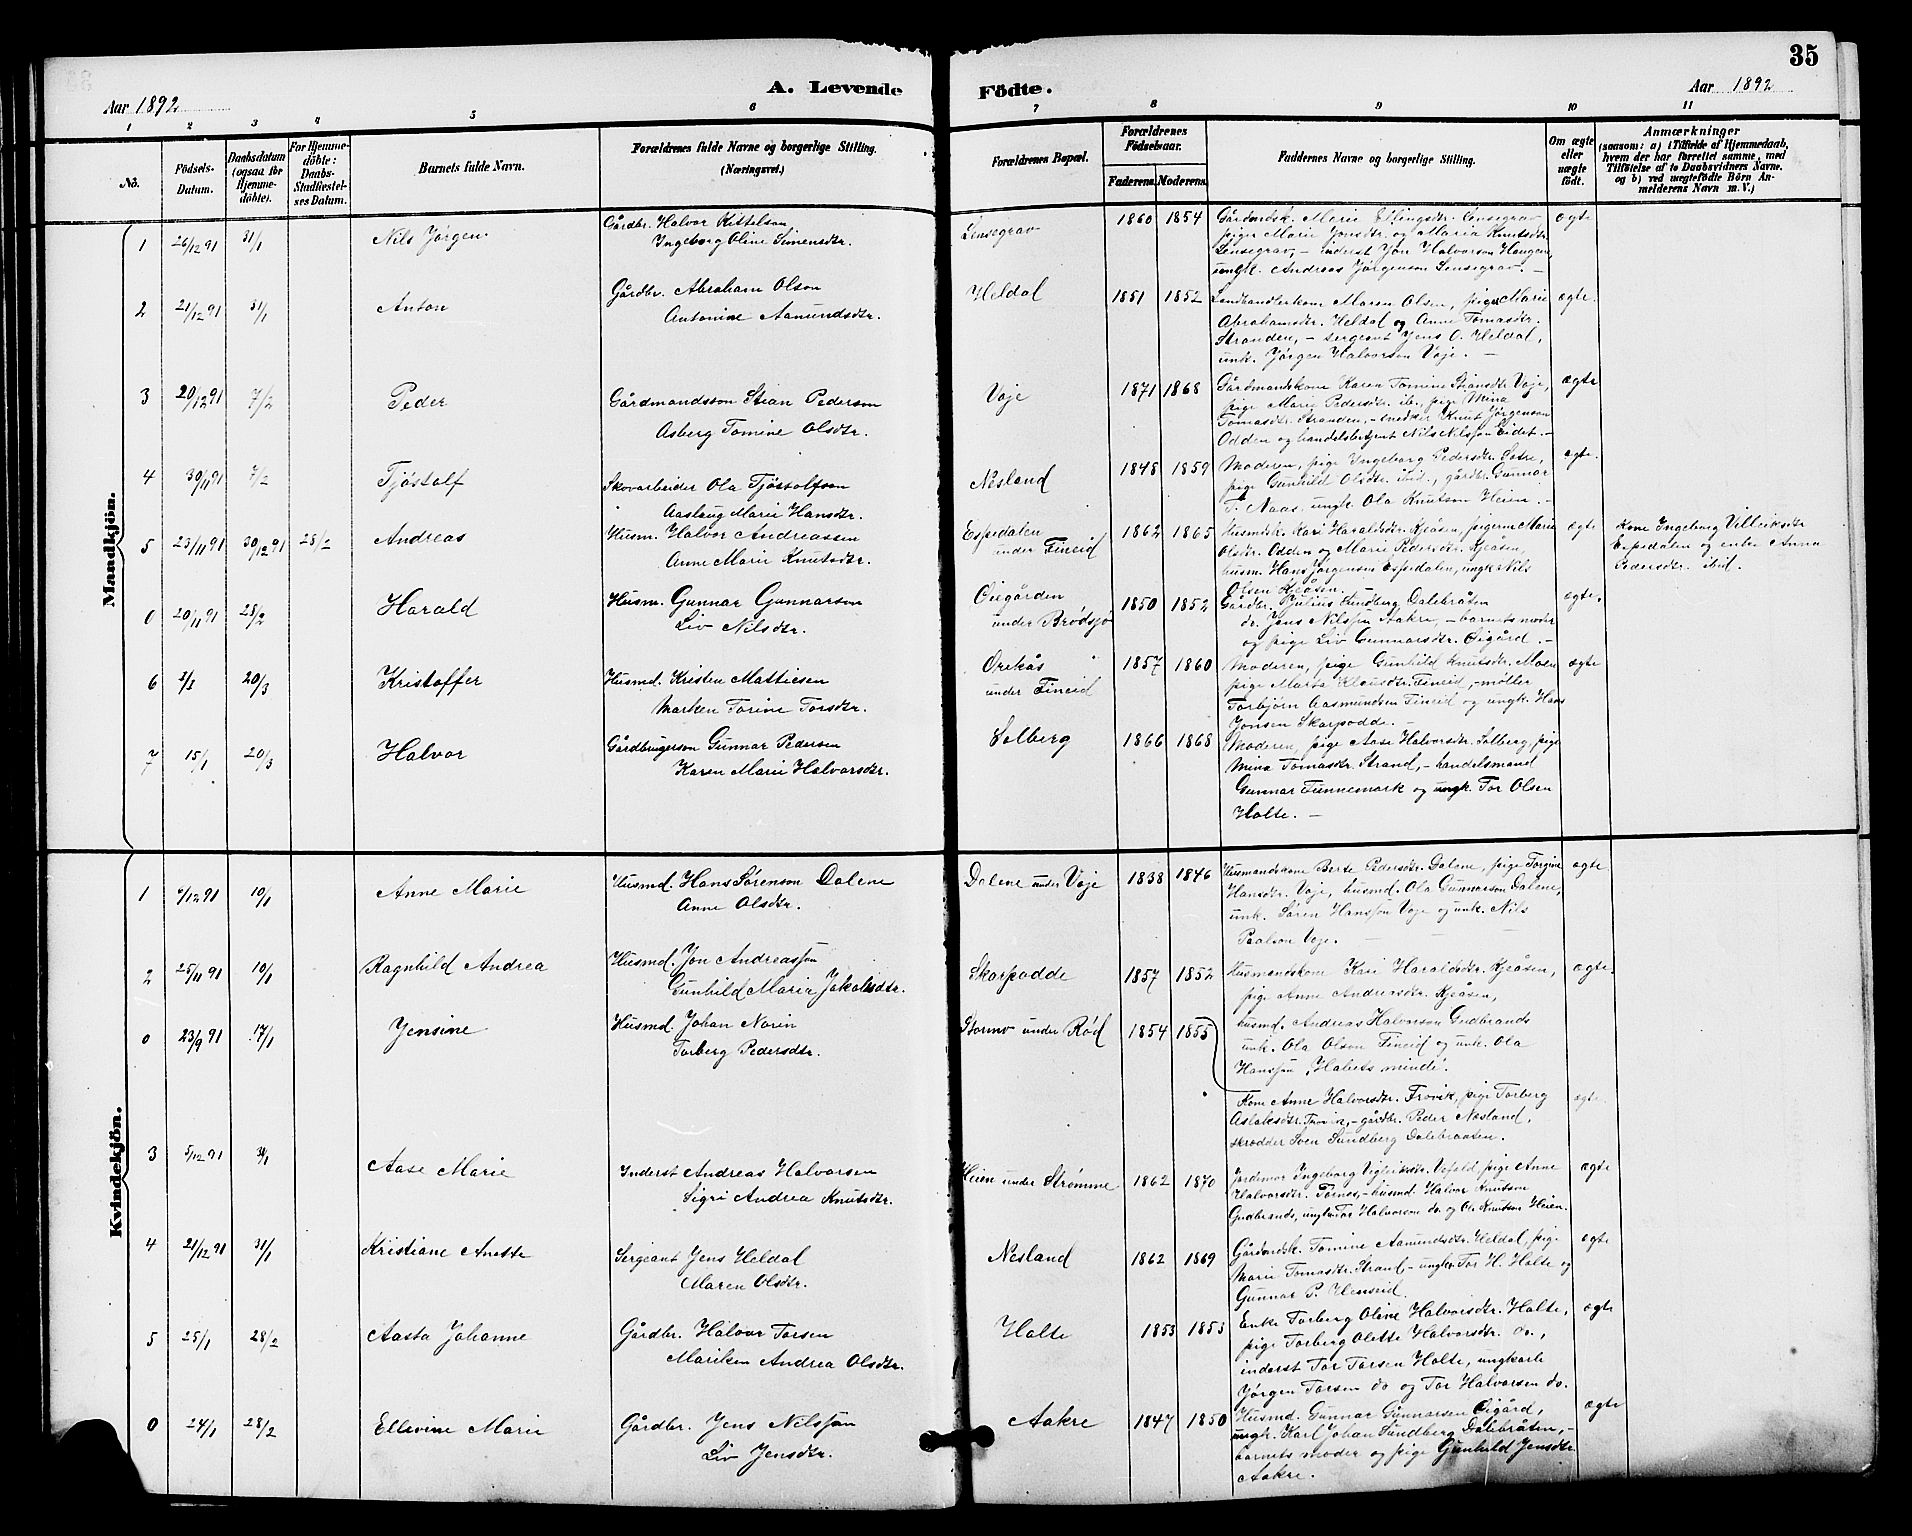 35
A. Levende Födte.
Aar 1892
Aar 1892
1 2 3 4 5 6 7 8 9 10 11
No.
Födsels-Datum.
Daabsdatum (ogsaa för Hjemme-döbte).
For Hjemme-döbte: Daabs-Stadfæstel-ses Datum.
Barnets fulde Navn.
Forældrenes fulde Navne og borgerlige Stilling. (Næringsvei.)
Forældrenes Bopæl.
Forældrenes Födselsaar.
Faderens. Moderens.
Faddernes Navne og borgerlige Stilling.
Om ægte eller uægte födt.
Anmærkninger
(saasom: a) i Tilfælde af Hjemmedaab, hvem der har forrettet samme, med Tilföielse af to Daabsvidners Navne, og b) ved uægtefödte Börn An-melderens Navn m. V.)
Mandkjön.
1 26/12 91 31/1 Nils Jørgen Gårdbr. Halvor Kittelsen Lensegrav 1860 1854 Gårdmdsk. Marie Ellingsdtr. Lensegrav ægte
Ingeborg Oline Simensdtr. pige Marie Jonsdtr. og Maria Knutsdtr.
Lensegrav, - inderst Jon Halvorson Haugen,
ungk. Andreas Jørgenson Lensegrav. -
2 21/12 91 31/1 Anton Gårdbr. Abraham Olson Heldal 1851 1852 Landhandlerkone Maren Olsen, pige Marie ægte.
Antonine Aamundsdtr. Abrahamsdtr. Heldal og Anne Tomasdtr.
Stranden, - sergeant Jens O. Heldal,
unk. Jørgen Halvorson Voje. -
3 20/12 91 7/2 Peder Gårdmandsson Stian Pederson Voje 1871 1868 Gårdmandskone Karen Tomine Stiansdtr. Voje, ægte
Asberg Tomine Olsdtr. pige Marie Pedersdtr. ib., pige Mina
Tomasdtr. Stranden, - snedker Knut Jørgenson
Odden og handelsbetjent Nils Nilsson Eidet. -
4 30/11 91 7/2 Tjöstolf Skovarbeider Ola Tjöstolfson Nesland 1848 1859 Moderen, pige Ingeborg Pedersdtr. ægte.
Aaslaug Marie Hansdtr. pige Gunhild Olsdtr. ibid., gårdbr. Gunnar
T. Naas, ungk. Ola Knutson Heien. -
5 23/11 91 30/12 91 28/2 Andreas Husm. Halvor Andreassen Espedalen under Fineid 1862 1865 Husmdsk. Kari Haraldsdtr. Kjeåsen, pigerne Marie ægte Kone Ingeborg Villeiksdtr.
Anne Marie Knutsdtr. Olsdtr. Odden og Marie Pedersdtr. Kjeåsen, Espedalen og enke Anna
husm. Hans Jørgensen Espedalen, ungk. Nils Pedersdtr. ibid.
Olsen Kjeåsen. -
0 20/11 91 28/2 Harald Husm. Gunnar Gunnarson Øiegården under Brødsjø 1850 1852 Gårdbr. Julius Sundberg Dalebråten ægte.
Liv Nilsdtr. do. Jens Nilssøn Aakre, - barnets moder
og pige Liv Gunnarsdtr. Øigård. -
6 20/3 Kristoffer Husmd. Kristen Mattiesen Orekås under Fineid 1857 1860 Moderen, pige Gunhild Knutsdtr. Moen ægte
Marken Torine Torsdtr. pige Marta Klausdtr. Fineid, - møller
Torbjörn Aasmundsen Fineid og ungk. Hans
Jonsen Skarpodde. -
7 15/1 20/3 Halvor Gårdbrugerson Gunnar Pedersen Solberg 1866 1868 Moderen, pige Aase Halvorsdtr. Solberg, pige
Karen Marie Halvorsdtr. Mina Tomasdtr. Strand, - handelsmand
Gunnar Tunnemark og ungk. Tor Olsen
Holte. -
Kvindekjön.
1 /12 91 10/1 Anne Marie Husmd. Hans Sørenson Dalene Dalene under Voje 1838 1846 Husmandskone Berte Pedersdtr. Dalene, pige Torgine ægte
Anne Olsdtr. Hansdtr. Voje, husmd. Ola Gunnarson Dalene,
unk. Søren Hanssøn Voje og unk. Nils
Paalson Voje.
2 25/11 91 10/1 Ragnhild Andrea Husmd. Jon Andreassøn Skarpodde 1857 1852 Husmandskone Kari Haraldsdtr. Kjeåsen, ægte.
Gunhild Marie Jakobsdtr. pige Anne Andreasdtr. Kjeåsen,
husmd. Andreas Halvorson Gudbrands
unk. Ola Olson Fineid og unk. Ola
Hanssøn, „Habets minde“.
0 23/9 91 17/1 Jensine Husmd. Johan Norin Stormo under Rød 1854 1855
Torberg Pedersdtr. Kone Anne Halvorsdtr. Frovik, pige Torberg ægte.
Aslaksdtr. Frovik, - gårdbr. Peder Nesland,
skrædder Sven Sundberg Dalebraaten.
3 5/12 91 31/1 Aase Marie Inderst Andreas Halvorsen Heien under Strømme 1862 1870 Jordmor Ingeborg Vigleiksdtr. Vefald, pige Anne ægte
Sigri Andrea Knutsdtr. Halvorsdtr. Tornes, - husmd. Halvor Knutson
Gudbrands, ungk. Tor Halvorsen do. og Ole Knutson Heien.
4 21/12 91 31/1 Kristiane Anette Sergeant Jens Heldal Nesland 1862 1869 Gårdmdsk. Tomine Aamundsdtr. Heldal, pige ægte
Maren Olsdtr. Marie Tomasdtr. Strand, - ungk. Tor H. Holte og
Gunnar P. Henseid.
5 25/1 28/2 Aasta Johanne Gårdbr. Halvor Torsen Holte 1853 1853 Enke Torberg Oline Halvorsdtr. Holte, ægte
Mariken Andrea Olsdtr. pige Torberg Olette Halvorsdtr. do.,
inderst Tor Torsen Holte, ungkarle
Jørgen Torsen do og Tor Halvorsen do.
0 24/1 28/2 Ellevine Marie Gårdbr. Jens Nilssøn Aakre 1847 1850 Husmd. Gunnar Gunnarsen Øigård, ægte
Liv Jensdtr. ungk. Karl Johan Sundberg Dalebråten, -
barnets moder og pige Gunhild Jensdtr.
Aakre.